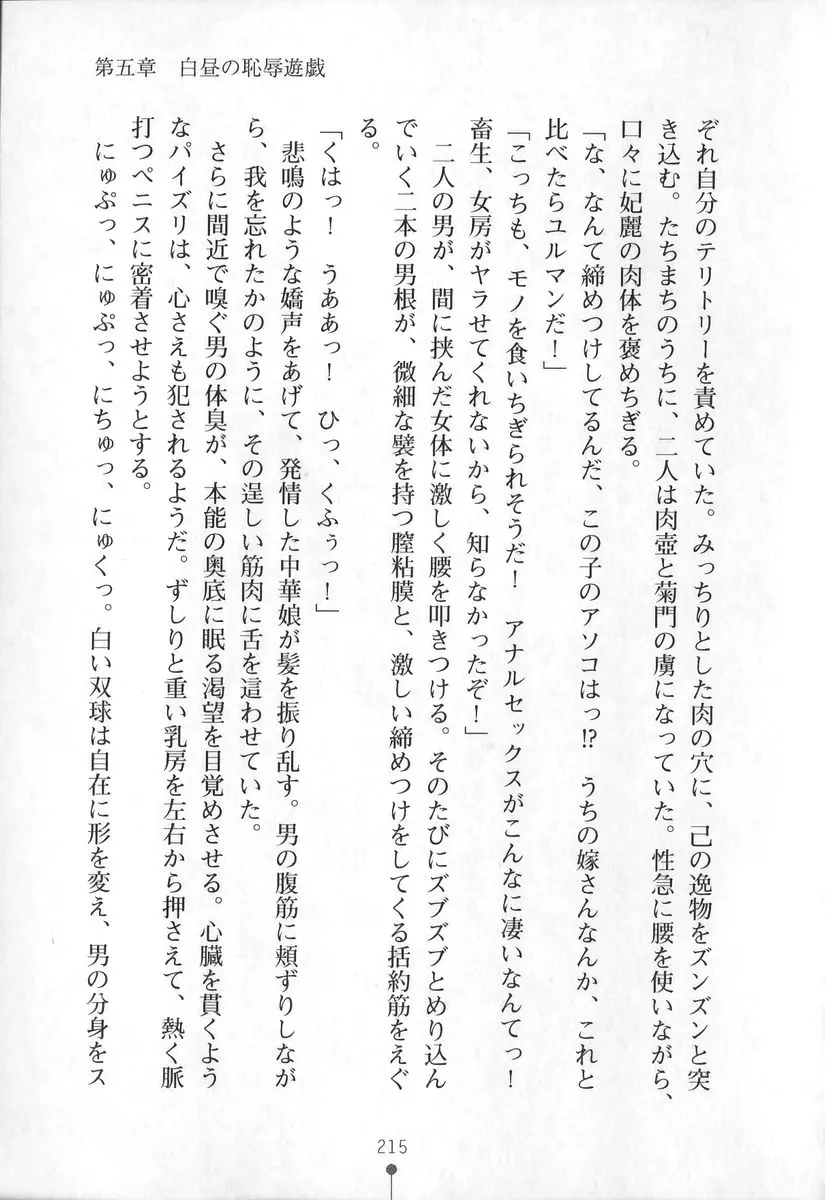 第五章　白昼の恥辱遊戯
ぞれ自分のテリトリーを責めていた。みっちりとした肉の穴に、己の逸物をズンズンと突
き込む。たちまちのうちに、二人は肉壺と菊門の虜になっていた。性急に腰を使いながら、
口々に妃麗の肉体を褒めちぎる。
「な、なんて締めつけしてるんだ、この子のアソコはっ!?　うちの嫁さんなんか、これと
比べたらユルマンだ！」
「こっちも、モノを食いちぎられそうだ！　アナルセックスがこんなに凄いなんてっ！
畜生、女房がヤラせてくれないから、知らなかったぞ！」
　二人の男が、間に挟んだ女体に激しく腰を叩きつける。そのたびにズブズブとめり込ん
でいく二本の男根が、微細な襞を持つ膣粘膜と、激しい締めつけをしてくる括約筋をえぐ
る。
「くはっ！　うああっ！　ひっ、くふぅっ！」
　悲鳴のような嬌声をあげて、発情した中華娘が髪を振り乱す。男の腹筋に頬ずりしなが
ら、我を忘れたかのように、その逞しい筋肉に舌を這わせていた。
　さらに間近で嗅ぐ男の体臭が、本能の奥底に眠る渇望を目覚めさせる。心臓を貫くよう
なパイズリは、心さえも犯されるようだ。ずしりと重い乳房を左右から押さえて、熱く脈
打つペニスに密着させようとする。
　にゅぷっ、にゅぷっ、にちゅっ、にゅくっ。白い双球は自在に形を変え、男の分身をス
215